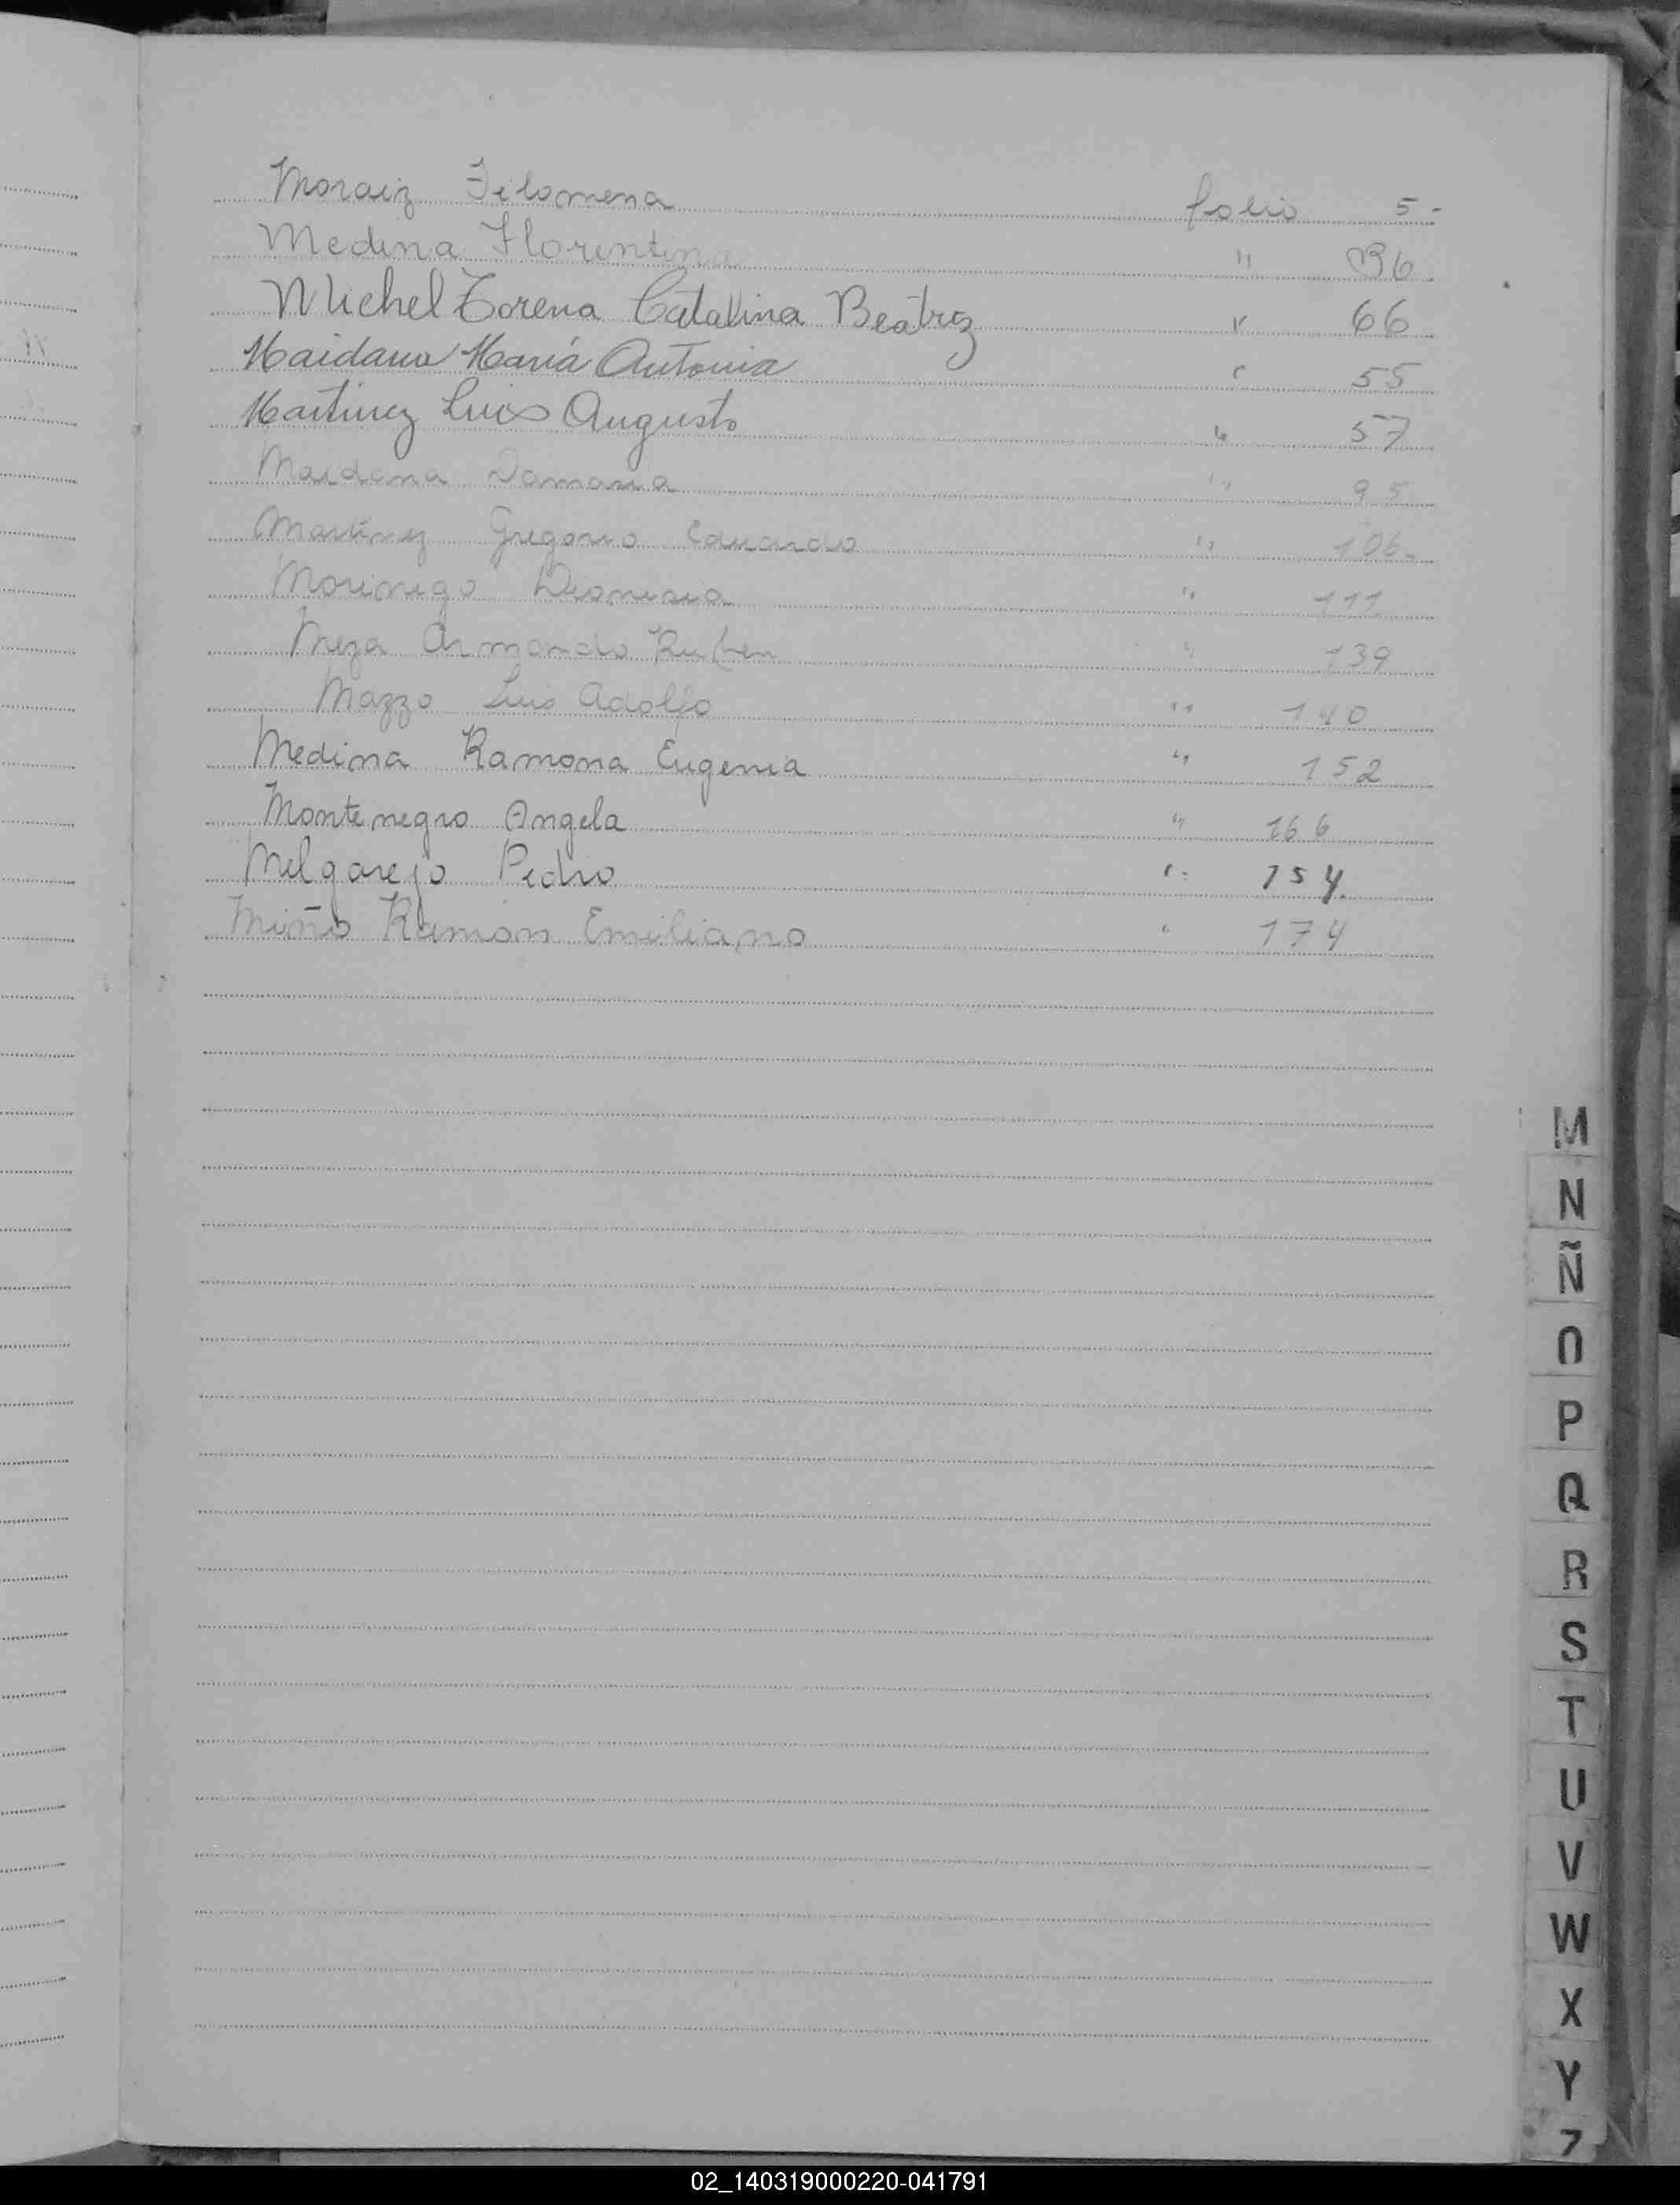 Moraiz Filomena folio 5-
Medina Florentina " 36
Michel Torena Catalina Beatriz " 66
Maidana María Antonia " 55
Martinez Luis Augusto " 57
Maidana Damasia " 95
Martínez Gregorio Eduardo " 106-
Morinigo Dionisia " 111
Meza Armando Ruben " 139
Mazzo Luis Adolfo " 140
Medina Ramona Eugenia " 152
Montenegro Angela " 166
Melgarejo Pedro " 154.
Miño Ramón Emiliano " 174
M
N
Ñ
O
P
Q
R
S
T
U
V
W
X
Y
Z
02_140319000220-041791